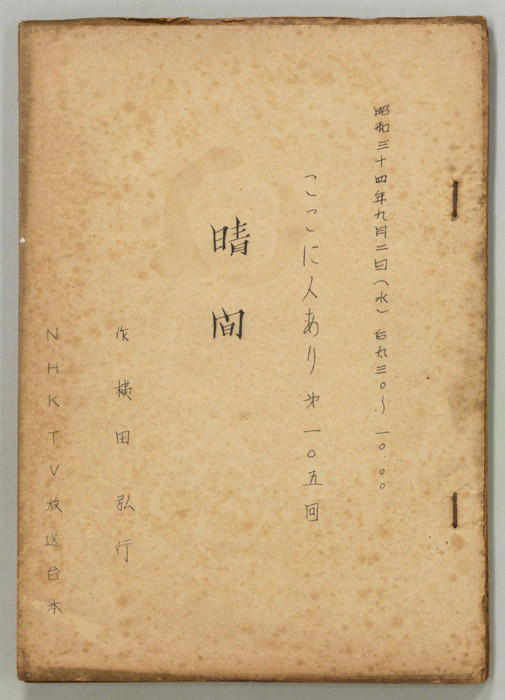 昭和三十四年九月二日(水)后九三〇.〜一〇.〇〇
ここに人あり 第一〇五回
晴間
作 横田弘行
NHKTV放送台本